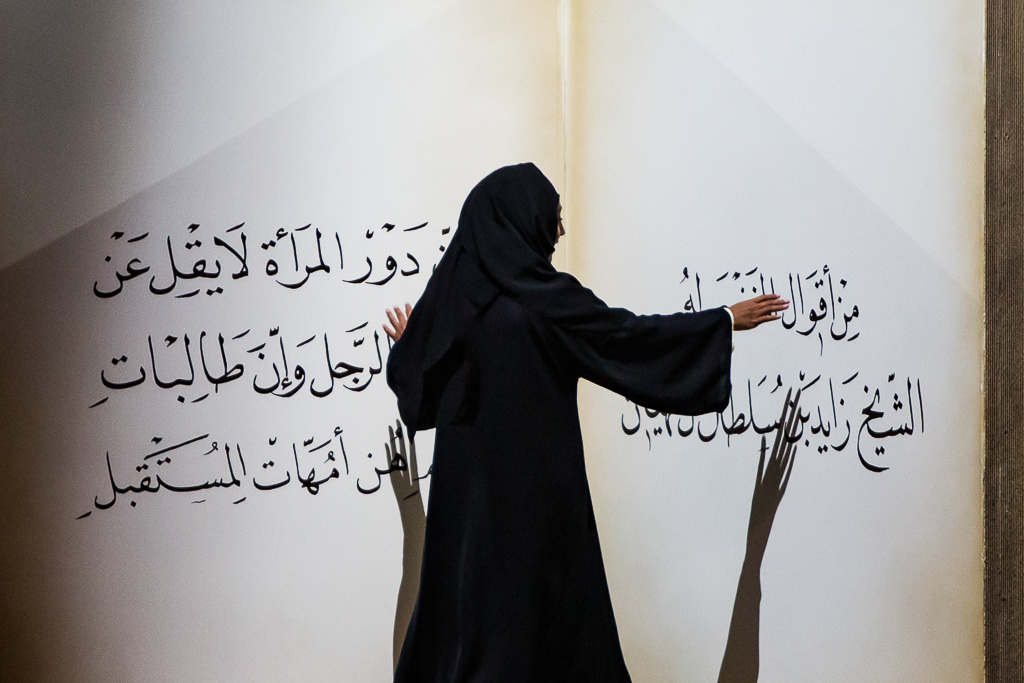 مِنْ أَقْوَالِ
الشَّيْخ زَايد بْن سُلطَان
دَوْرَ المَرأَة لَا يقِل عَنْ
الرَّجل وَإنّ طَالِبَات
هُن أمَّهَاتْ المُسْتَقْبل